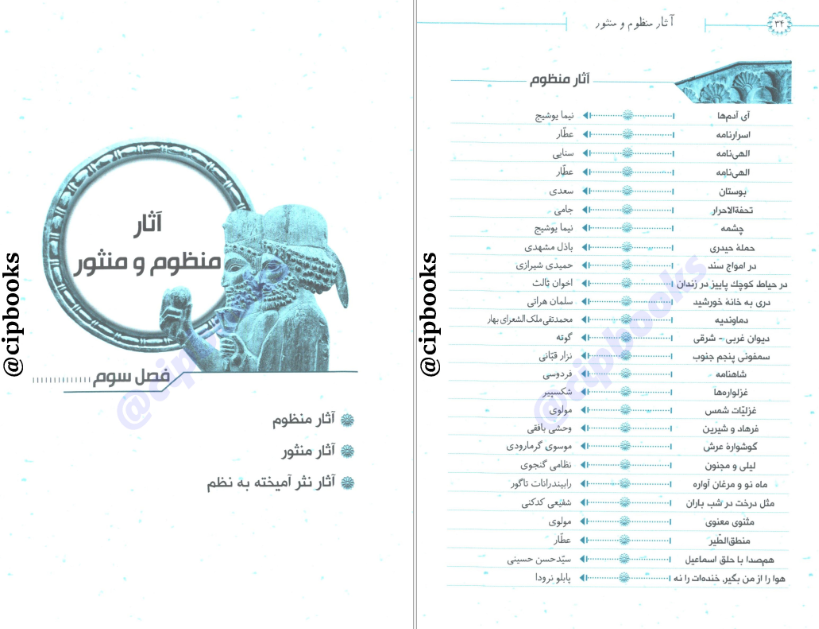 ۳۴
آثار منظوم و منثور
آثار منظوم
آی آدم‌ها نیما یوشیج
اسرارنامه عطّار
الهی‌نامه سنایی
الهی‌نامه عطّار
بوستان سعدی
تحفةالاحرار جامی
چشمه نیما یوشیج
حملهٔ حیدری باذل مشهدی
در امواج سند حمیدی شیرازی
در حیاط کوچک پاییز در زندان اخوان ثالث
دری به خانهٔ خورشید سلمان هراتی
دماوندیه محمدتقی ملک الشعرای بهار
دیوان غربی - شرقی گوته
سمفونی پنجم جنوب نزار قبّانی
شاهنامه فردوسی
غزلواره‌ها شکسپیر
غزلیّات شمس مولوی
فرهاد و شیرین وحشی بافقی
گوشوارهٔ عرش موسوی گرمارودی
لیلی و مجنون نظامی گنجوی
ماه نو و مرغان آواره رابیندرانات تاگور
مثل درخت در شب باران شفیعی کدکنی
مثنوی معنوی مولوی
منطق‌الطّیر عطّار
هم‌صدا با حلق اسماعیل سیّدحسن حسینی
هوا را از من بگیر، خنده‌ات را نه پابلو نرودا
@cipbooks
@cipbooks
آثار
منظوم و منثور
فصل سوم
آثار منظوم
آثار منثور
آثار نثر آمیخته به نظم
@cipbooks
@cipbooks